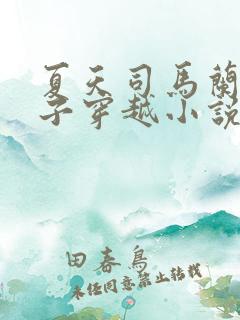 夏天司馬蘭
子穿越小說
田春鳥
未經同意禁止轉載